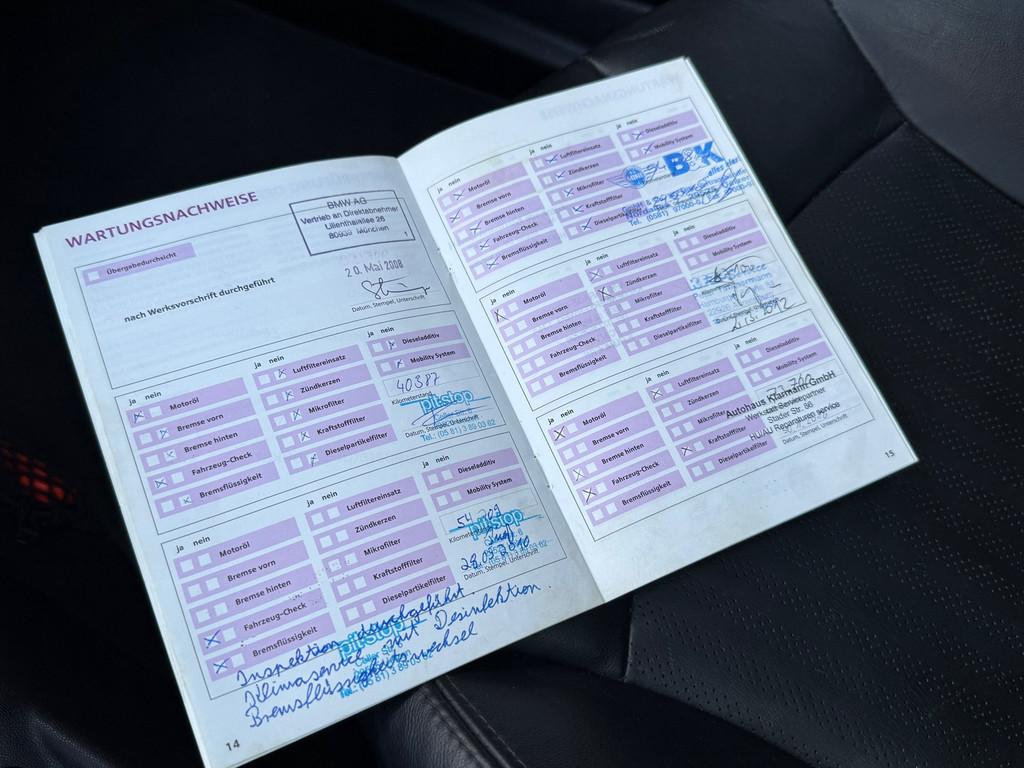 WARTUNGSNACHWEISE
Übergabedurchsicht
nach Werksvorschrift durchgeführt
BMW AG
Vertrieb an Direktabnehmer
Lilienthalallee 26
80939 München
1
20. Mai 2008
Datum, Stempel, Unterschrift
ja nein
Motoröl
Bremse vorn
Bremse hinten
Fahrzeug-Check
Bremsflüssigkeit
ja nein
Luftfiltereinsatz
Zündkerzen
Mikrofilter
Kraftstofffilter
Dieselpartikelfilter
ja nein
Dieseladditiv
Mobility System
40387
Kilometerstand
pit-stop
Datum, Stempel, Unterschrift
Tel.: (05 81) 3 89 03 82
ja nein
Motoröl
Bremse vorn
Bremse hinten
Fahrzeug-Check
Bremsflüssigkeit
ja nein
Luftfiltereinsatz
Zündkerzen
Mikrofilter
Kraftstofffilter
Dieselpartikelfilter
ja nein
Dieseladditiv
Mobility System
Kilometerstand
pit-stop
28.05.2010
Datum, Stempel, Unterschrift
Inspektion durchgeführt.
Klimaservice mit Desinfektion.
Bremsflüssigkeitswechsel
pit-stop
14
ja nein
Motoröl
Bremse vorn
Bremse hinten
Fahrzeug-Check
Bremsflüssigkeit
ja nein
Luftfiltereinsatz
Zündkerzen
Mikrofilter
Kraftstofffilter
Dieselpartikelfilter
ja nein
Dieseladditiv
Mobility System
B&K
Tel. (0581)
ja nein
Motoröl
Bremse vorn
Bremse hinten
Fahrzeug-Check
Bremsflüssigkeit
ja nein
Luftfiltereinsatz
Zündkerzen
Mikrofilter
Kraftstofffilter
Dieselpartikelfilter
ja nein
Dieseladditiv
Mobility System
ja nein
Motoröl
Bremse vorn
Bremse hinten
Fahrzeug-Check
Bremsflüssigkeit
ja nein
Luftfiltereinsatz
Zündkerzen
Mikrofilter
Kraftstofffilter
Dieselpartikelfilter
ja nein
Dieseladditiv
Mobility System
Autohaus Klarmann GmbH
Werkstatt Servicepartner
Stader Str. 66
HU/AU Reparaturen service
Datum, Stempel, Unterschrift
15